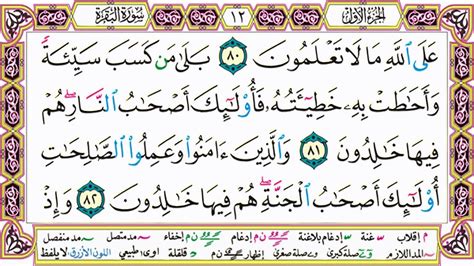 الجزء الأول ١٢ سورة البقرة
عَلَى ٱللَّهِ مَا لَا تَعْلَمُونَ ٨٠ بَلَىٰ مَن كَسَبَ سَيِّئَةً
وَأَحَٰطَتْ بِهِۦ خَطِيٓـَٔتُهُۥ فَأُو۟لَٰٓئِكَ أَصْحَٰبُ ٱلنَّارِ ۖ هُمْ
فِيهَا خَٰلِدُونَ ٨١ وَٱلَّذِينَ ءَامَنُوا۟ وَعَمِلُوا۟ ٱلصَّٰلِحَٰتِ
أُو۟لَٰٓئِكَ أَصْحَٰبُ ٱلْجَنَّةِ ۖ هُمْ فِيهَا خَٰلِدُونَ ٨٢ وَإِذْ
م إقلاب س غنة إدغام بلاغنة ن م إدغام إخفاء مد متصل مد منفصل
المد اللازم صلة كبرى صلة صغرى إظهار ن م قلقلة اوى طبيعي اللون الأزرق لا يلفظ